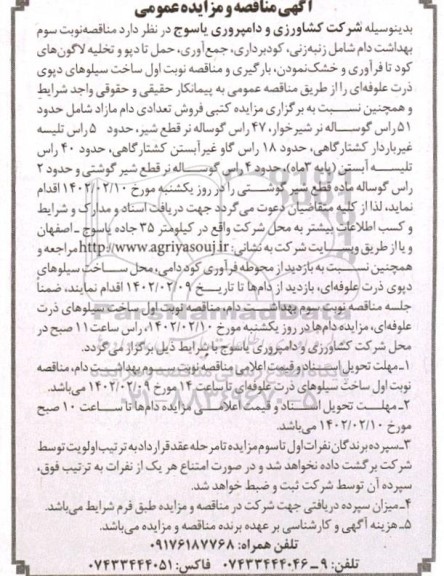 آگهی مناقصه و مزایده عمومی
بدینوسیله شرکت کشاورزی و دامپروری یاسوج در نظر دارد مناقصه نوبت سوم
بهداشت دام شامل زنبه‌زنی، کودبرداری، جمع‌آوری، حمل تا دپو و تخلیه لاگون‌های
کود تا فرآوری و خشک‌نمودن، بارگیری و مناقصه نوبت اول ساخت سیلوهای دپوی
ذرت علوفه‌ای را از طریق مناقصه عمومی به پیمانکار حقیقی و حقوقی واجد شرایط
و همچنین نسبت به برگزاری مزایده کتبی فروش تعدادی دام مازاد شامل حدود
۵۱ راس گوساله نر شیرخوار، ۴۷ راس گوساله نر قطع شیر، حدود ۵ راس تلیسه
غیرباردار کشتارگاهی، حدود ۱۸ راس گاو غیرآبستن کشتارگاهی، حدود ۴۰ راس
تلیسه آبستن (پایه ۳ماه)، حدود ۴ راس گوساله نر قطع شیر گوشتی و حدود ۲
راس گوساله ماده قطع شیر گوشتی را در روز یکشنبه مورخ ۱۴۰۲/۰۲/۱۰ اقدام
نماید، لذا از کلیه متقاضیان دعوت می‌گردد جهت دریافت اسناد و مدارک و شرایط
و کسب اطلاعات بیشتر به محل شرکت واقع در کیلومتر ۳۵ جاده یاسوج - اصفهان
و یا از طریق وبسایت شرکت به نشانی: http://www.agriyasouj.ir مراجعه و
همچنین نسبت به بازدید از محوطه فرآوری کود دامی، محل ساخت سیلوهای
دپوی ذرت علوفه‌ای، بازدید از دام‌ها تا تاریخ ۱۴۰۲/۰۲/۰۹ اقدام نمایند، ضمناً
جلسه مناقصه نوبت سوم بهداشت دام، مناقصه نوبت اول ساخت سیلوهای ذرت
علوفه‌ای، مزایده دام‌ها در روز یکشنبه مورخ ۱۴۰۲/۰۲/۱۰، راس ساعت ۱۱ صبح در
محل شرکت کشاورزی و دامپروری یاسوج با شرایط ذیل برگزار می‌گردد.
۱ـ مهلت تحویل اسناد و قیمت اعلامی مناقصه نوبت سوم بهداشت دام، مناقصه
نوبت اول ساخت سیلوهای ذرت علوفه‌ای تا ساعت ۱۴ مورخ ۱۴۰۲/۰۲/۰۹ می‌باشد.
۲ـ مهلت تحویل اسناد و قیمت اعلامی مزایده دام‌ها تا ساعت ۱۰ صبح
مورخ ۱۴۰۲/۰۲/۱۰ می‌باشد.
۳ـ سپرده برندگان نفرات اول تا سوم مزایده تا مرحله عقد قرارداد به ترتیب اولویت توسط
شرکت برگشت داده نخواهد شد و در صورت امتناع هر یک از نفرات به ترتیب فوق،
سپرده آن توسط شرکت ثبت و ضبط خواهد شد.
۴ـ میزان سپرده دریافتی جهت شرکت در مناقصه و مزایده طبق فرم شرایط می‌باشد.
۵ـ هزینه آگهی و کارشناسی بر عهده برنده مناقصه و مزایده می‌باشد.
تلفن همراه: ۰۹۱۷۶۱۸۷۷۶۸
تلفن: ۹ـ۰۷۴۳۳۴۴۴۰۴۶ فاکس: ۰۷۴۳۳۴۴۴۰۵۱